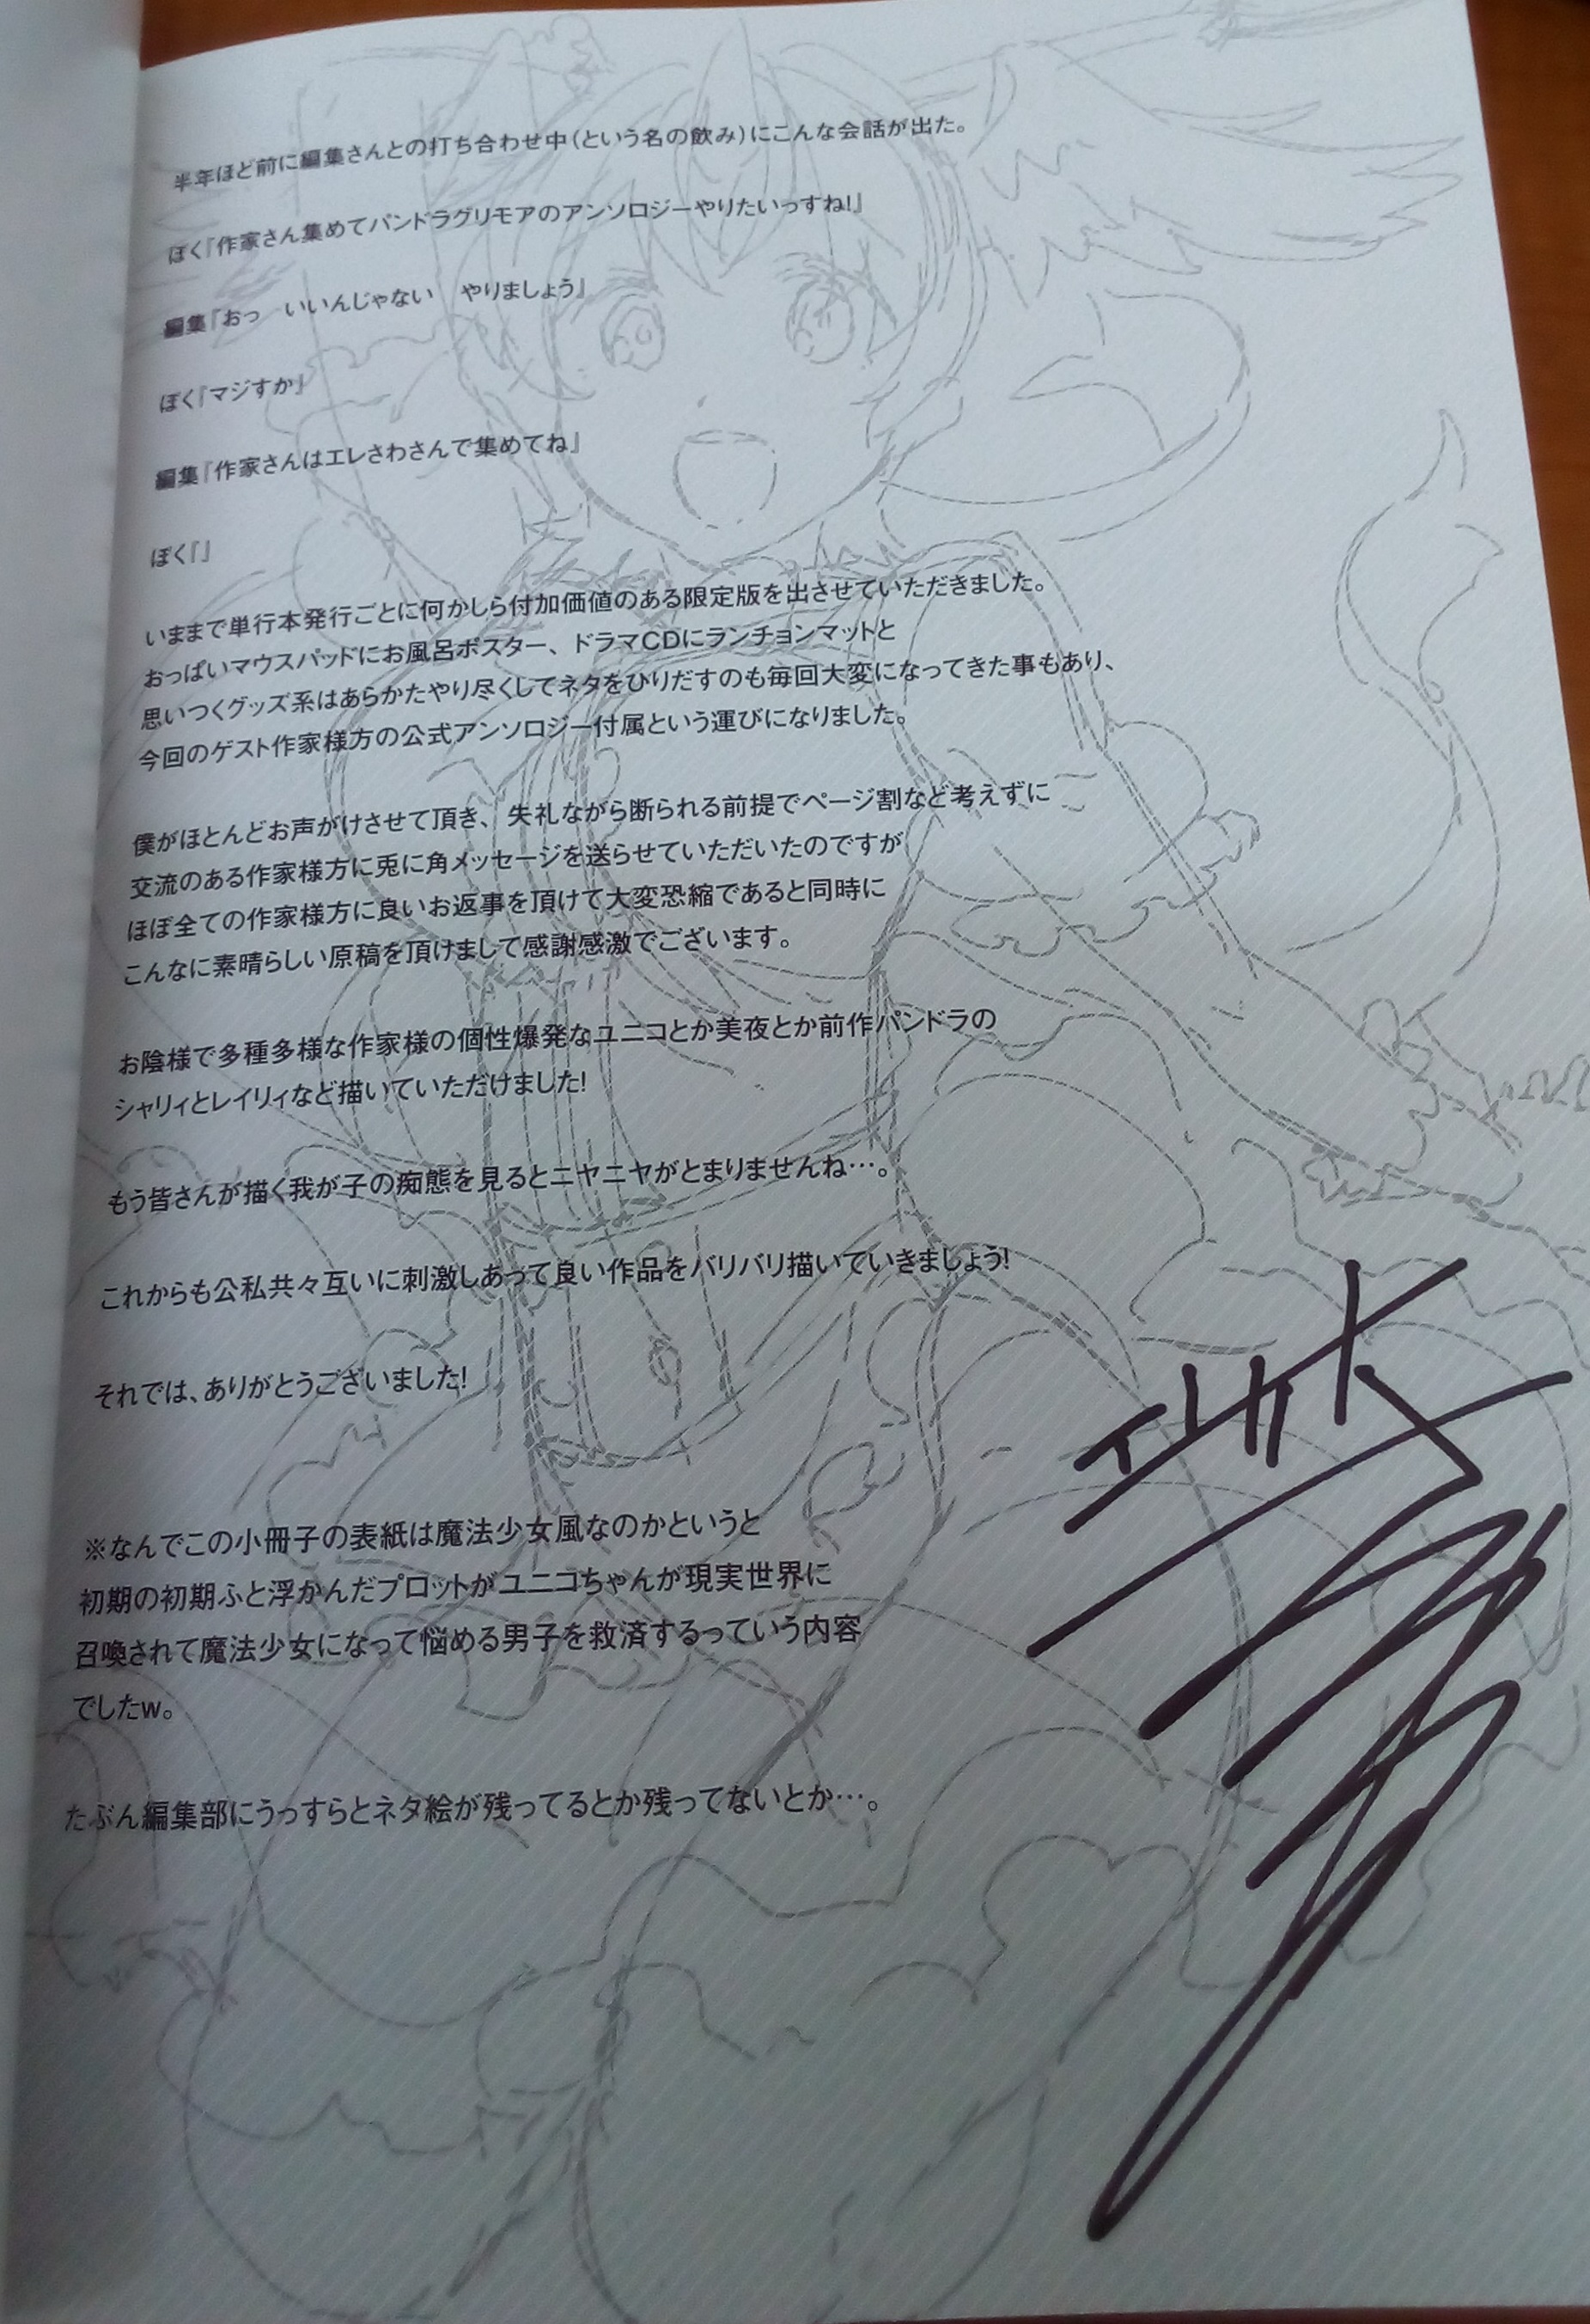 半年ほど前に編集さんとの打ち合わせ中(という名の飲み)にこんな会話が出た。
ぼく『作家さん集めてパンドラグリモアのアンソロジーやりたいっすね!』
編集『おっ　いいんじゃない　やりましょう』
ぼく『マジすか』
編集『作家さんはエレさわさんで集めてね』
ぼく『』
いままで単行本発行ごとに何かしら付加価値のある限定版を出させていただきました。
おっぱいマウスパッドにお風呂ポスター、ドラマCDにランチョンマットと
思いつくグッズ系はあらかたやり尽くしてネタをひりだすのも毎回大変になってきた事もあり、
今回のゲスト作家様方の公式アンソロジー付属という運びになりました。
僕がほとんどお声がけさせて頂き、失礼ながら断られる前提でページ割など考えずに
交流のある作家様方に兎に角メッセージを送らせていただいたのですが
ほぼ全ての作家様方に良いお返事を頂けて大変恐縮であると同時に
こんなに素晴らしい原稿を頂けまして感謝感激でございます。
お陰様で多種多様な作家様の個性爆発なユニコとか美夜とか前作パンドラの
シャリィとレイリィなど描いていただけました!
もう皆さんが描く我が子の痴態を見るとニヤニヤがとまりませんね…。
これからも公私共々互いに刺激しあって良い作品をバリバリ描いていきましょう!
それでは、ありがとうございました!
※なんでこの小冊子の表紙は魔法少女風なのかというと
初期の初期ふと浮かんだプロットがユニコちゃんが現実世界に
召喚されて魔法少女になって悩める男子を救済するっていう内容
でしたw。
たぶん編集部にうっすらとネタ絵が残ってるとか残ってないとか…。